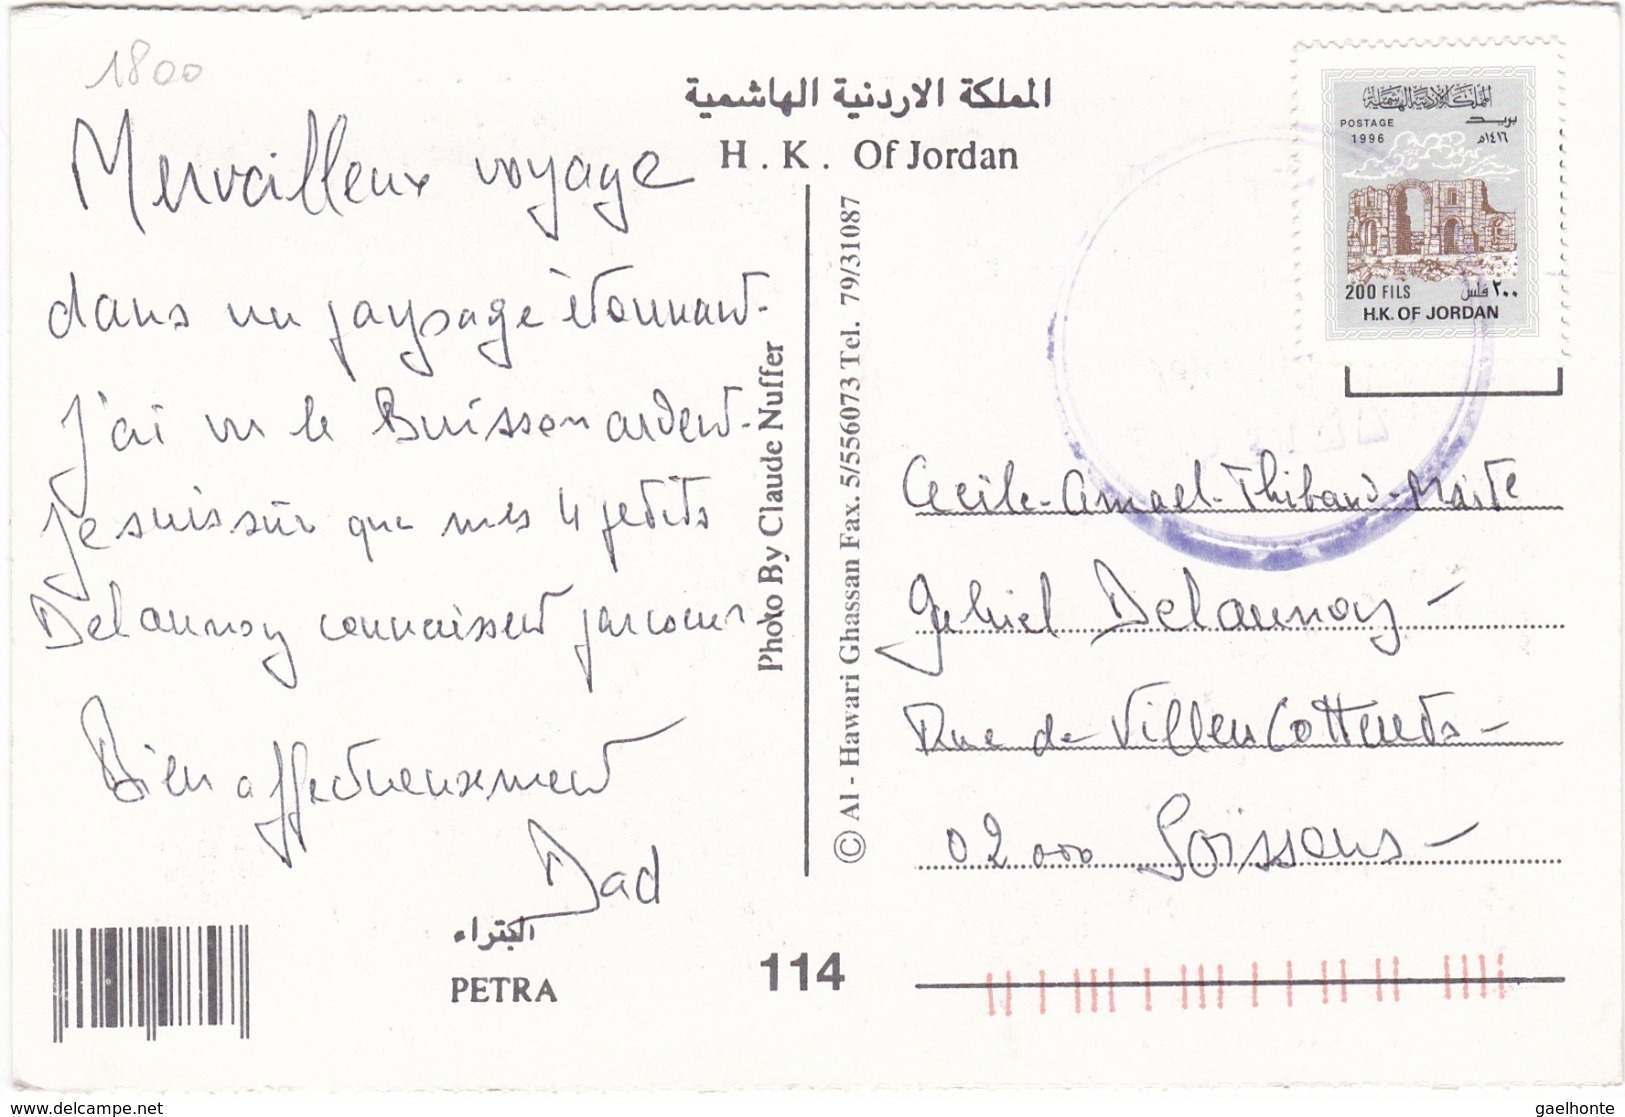 1800
المملكة الاردنية الهاشمية
H. K. Of Jordan
Merveilleux voyage
dans un paysage étonnant-
J'ai vu le Buisson ardent-
Je suis sûr que mes 4 petits
Delaunoy connaissent parcoeur
Bien affectueusement
Dad
البتراء
PETRA
114
Photo By Claude Nuffer
© Al - Hawari Ghassan Fax. 5/556073 Tel. 79/31087
المملكة الاردنية الهاشمية
POSTAGE
1996
بريد
١٤١٦هـ
200 FILS
٢٠٠ فلس
H.K. OF JORDAN
Cecile-Amael-Thibaud-Marte
Gabriel Delaunoy-
Rue de Villers Cotterets-
02000 Soissons-
www.delcampe.net
gaelhonte